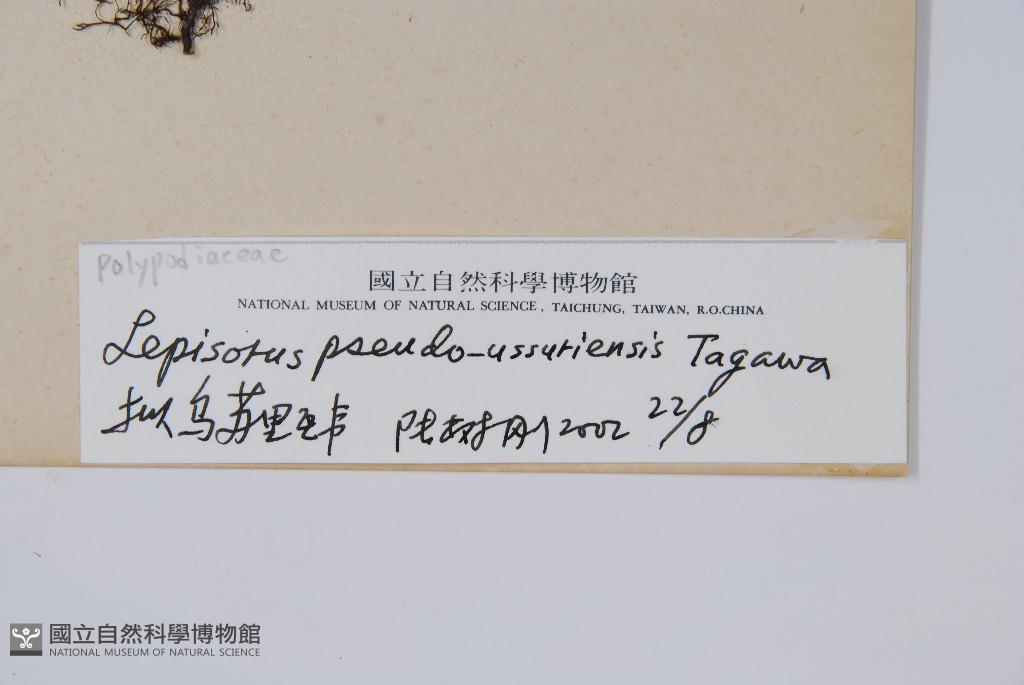 Polypodiaceae
國立自然科學博物館
NATIONAL MUSEUM OF NATURAL SCIENCE, TAICHUNG, TAIWAN, R.O.CHINA
Lepisorus pseudo-ussuriensis Tagawa
拟乌苏里瓦韦 陆树刚 2002 22/8
國立自然科學博物館
NATIONAL MUSEUM OF NATURAL SCIENCE